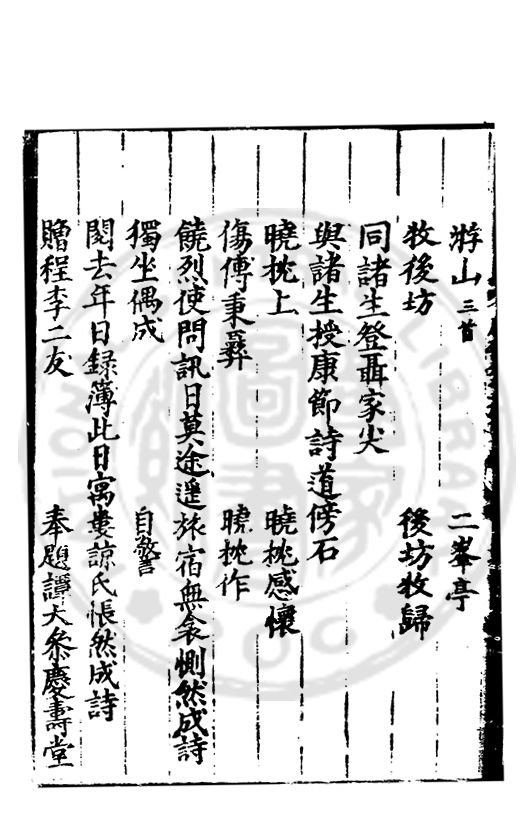 游山三首　二峯亭
牧後坊　後坊牧歸
同諸生登聶家尖
與諸生授康節詩道傍石
曉枕上　曉枕感懷
傷傅秉彛　曉枕作
饒烈使問訊日莫途遥旅宿無衾惻然成詩
獨坐偶成　自警
閱去年日録簿此日寓婁諒氏悵然成詩
贈程李二友　奉題譚大叅慶壽堂